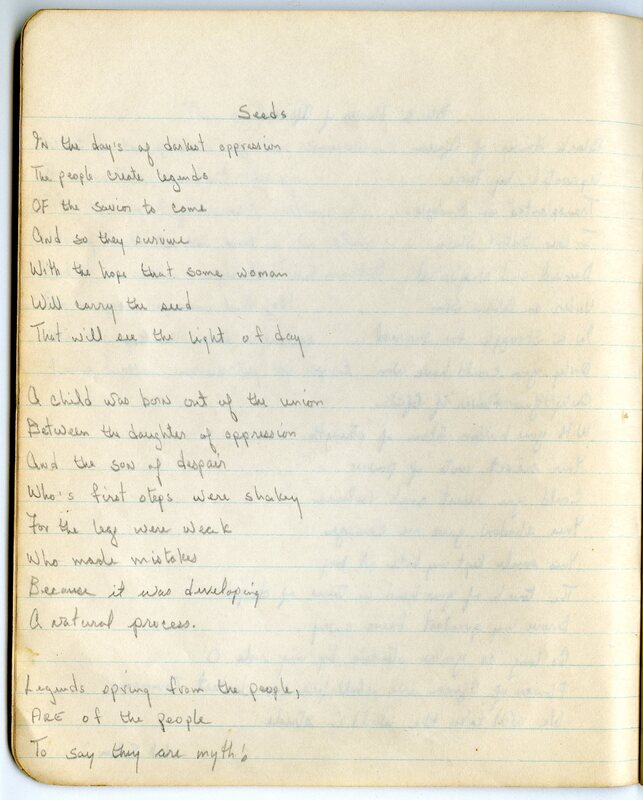 Seeds
In the day's of darkest oppression
The people create legends
OF the savior to come
And so they survive
With the hope that some woman
Will carry the seed
That will see the light of day
A child was born out of the union
Between the daughter of oppression
And the son of despair
Who's first steps were shakey
For the legs were weak
Who made mistakes
Because it was developing
A natural process.
Legends spring from the people,
ARE of the people
To say they are myth's